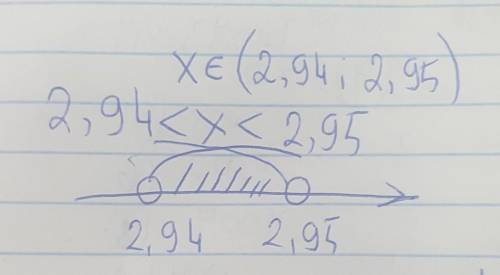 x∈(2,94; 2,95)
2,94<x<2,95
2,94 2,95